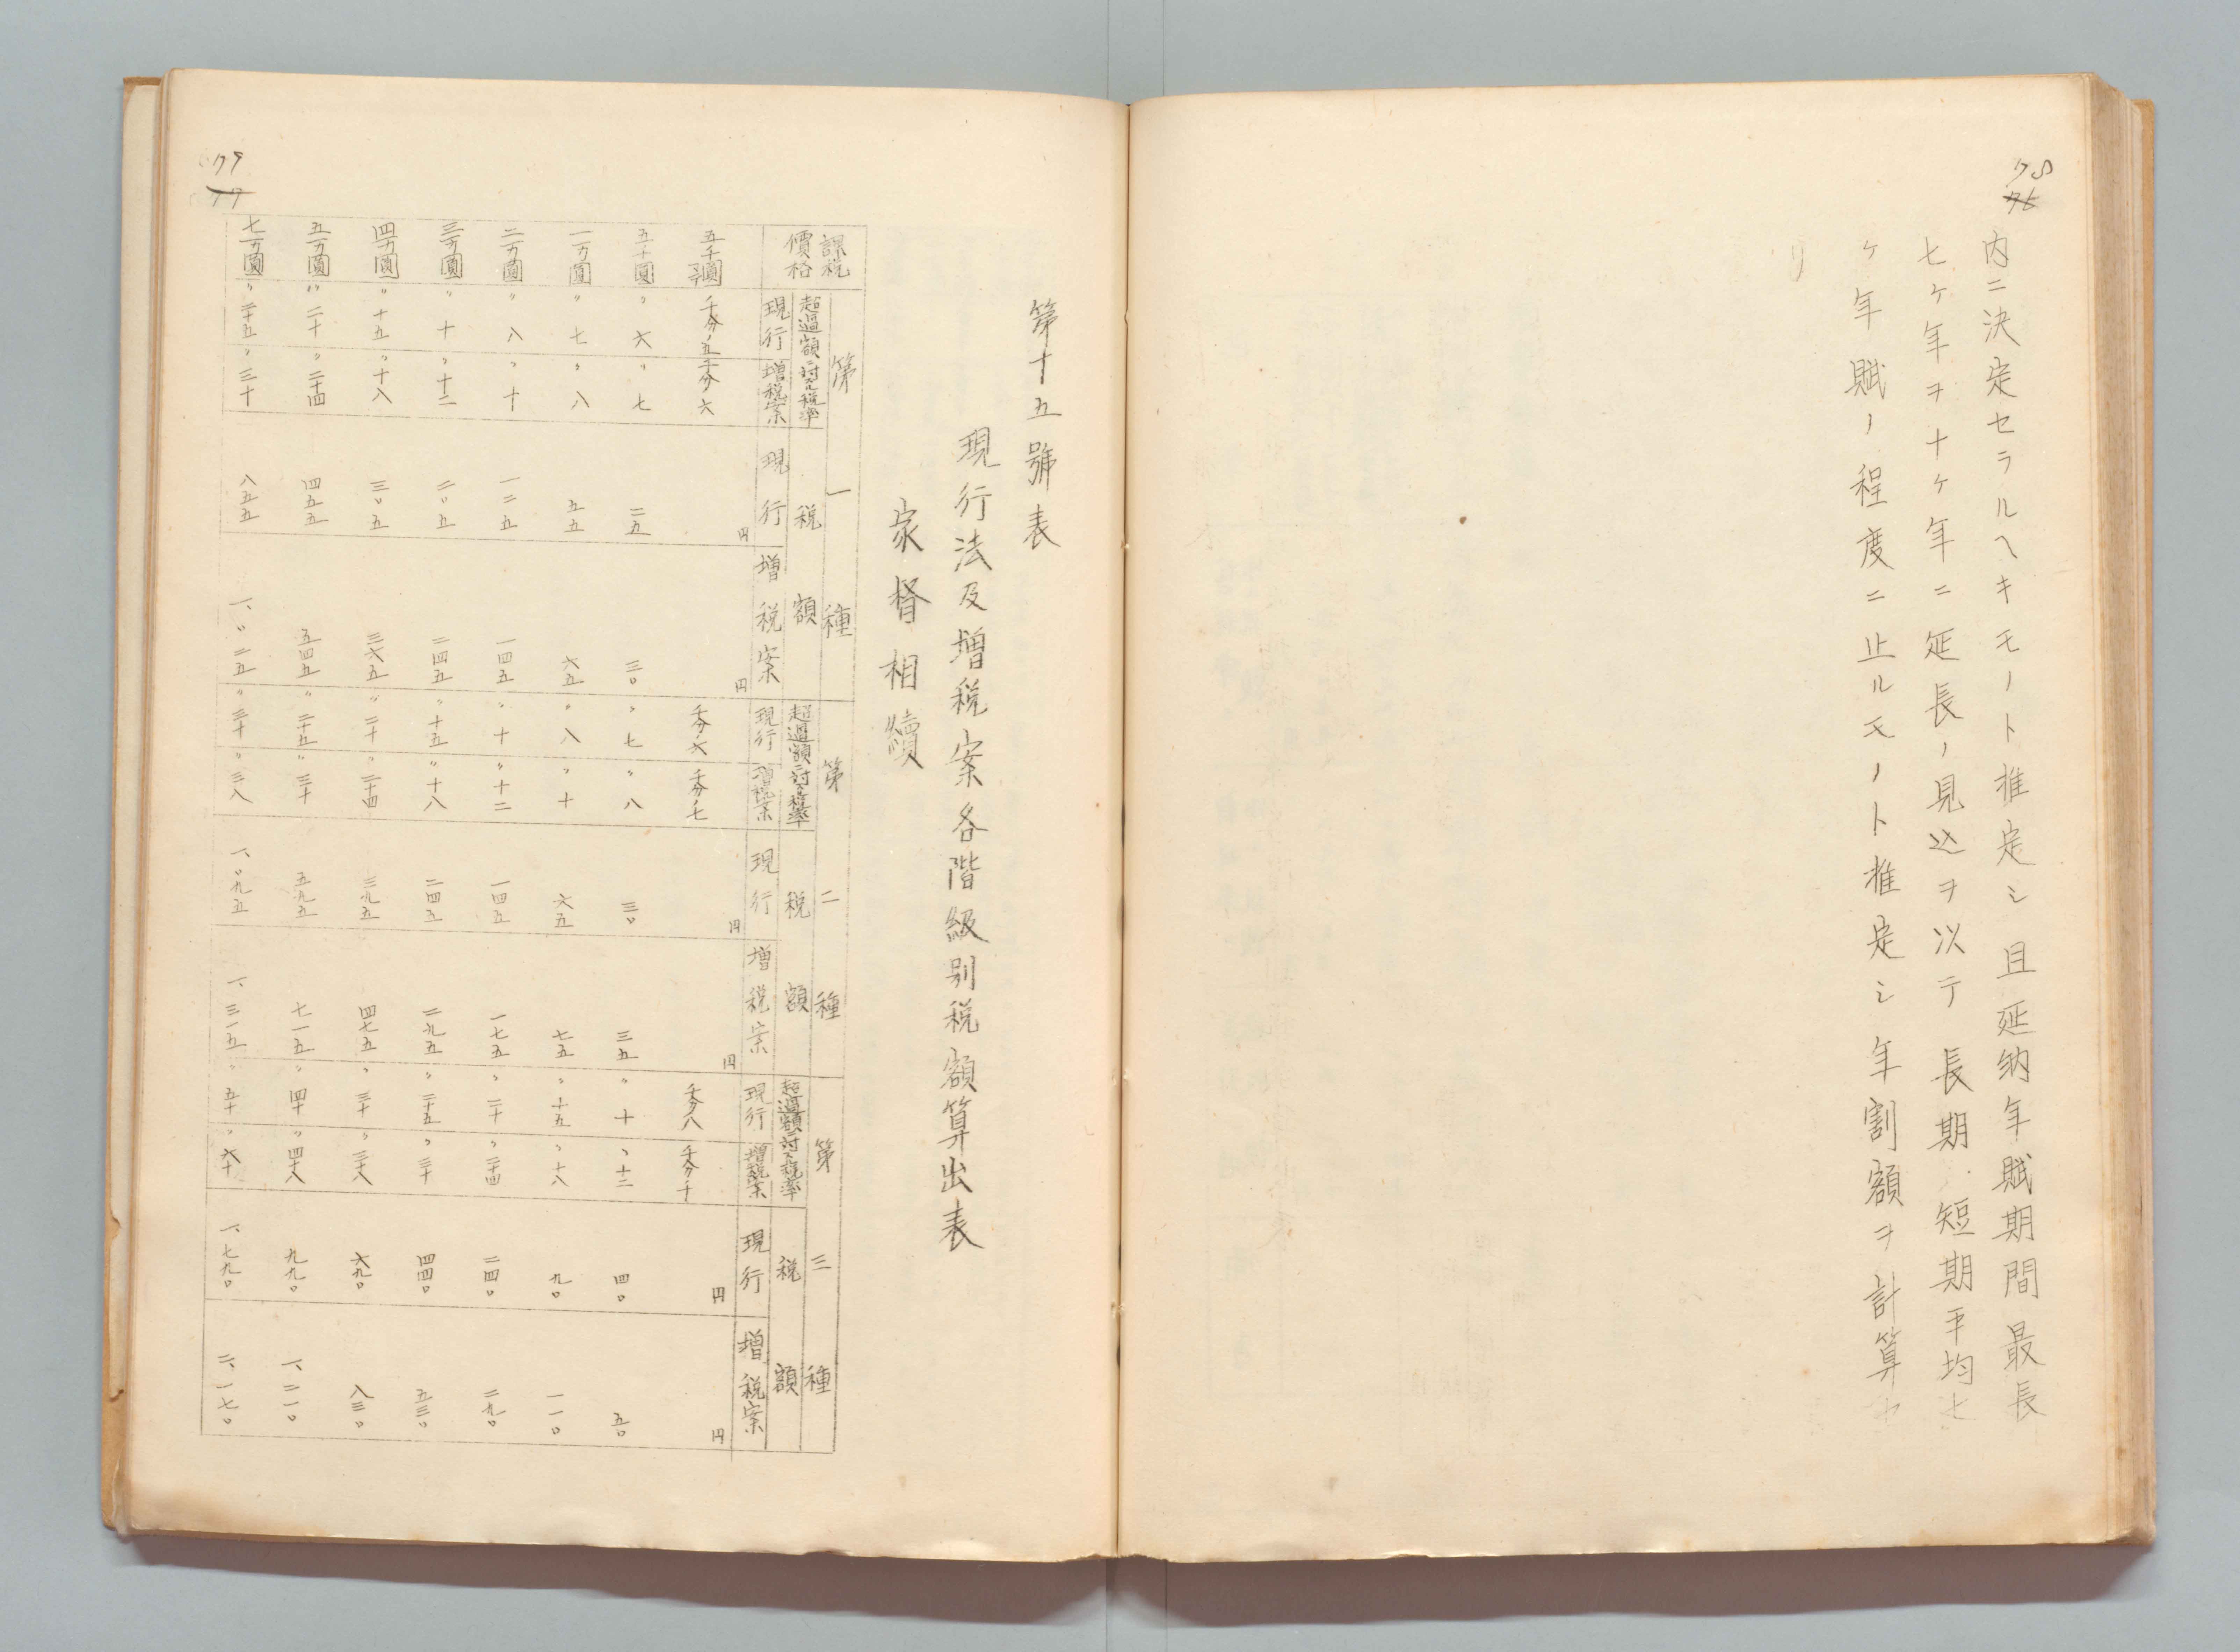 78
76
内ニ決定セラルヘキモノト推定シ且延納年賦期間最長
七ケ年ヲ十ケ年ニ延長ノ見込ヲ以テ長期短期平均七
ケ年賦ノ程度ニ止ルモノト推定シ年割額ヲ計算セ
リ
79
77
第十五號表
現行法及増税案各階級別税額算出表
家督相續
課税價格 第一種 第二種 第三種
超過額ニ対スル税率 税額 超過額ニ対スル税率 税額 超過額ニ対スル税率 税額
現行 増税案 現行 増税案 現行 増税案 現行 増税案 現行 増税案 現行 増税案
円 円 円 円 円 円
五千圓 千分ノ五 千分ノ六 千分ノ六 千分ノ七 千分ノ八 千分ノ十
五千圓 〃六 〃七 二五 三〇 〃七 〃八 三〇 三五 〃十 〃十二 四〇 五〇
一万圓 〃七 〃八 五五 六五 〃八 〃十 六五 七五 〃十五 〃十八 九〇 一一〇
二万圓 〃八 〃十 一二五 一四五 〃十 〃十二 一四五 一七五 〃二十 〃二十四 二四〇 二九〇
三万圓 〃十 〃十二 二〇五 二四五 〃十五 〃十八 二四五 二九五 〃二十五 〃三十 四四〇 五三〇
四万圓 〃十五 〃十八 三〇五 三六五 〃二十 〃二十四 三九五 四七五 〃三十 〃三十八 六九〇 八三〇
五万圓 〃二十 〃二十四 四五五 五四五 〃二十五 〃三十 五九五 七一五 〃四十 〃四十八 九九〇 一、二一〇
七万圓 〃二十五 〃三十 八五五 一、〇二五 〃三十 〃三八 一、〇九五 一、三一五 〃五十 〃六十 一、七九〇 二、一七〇